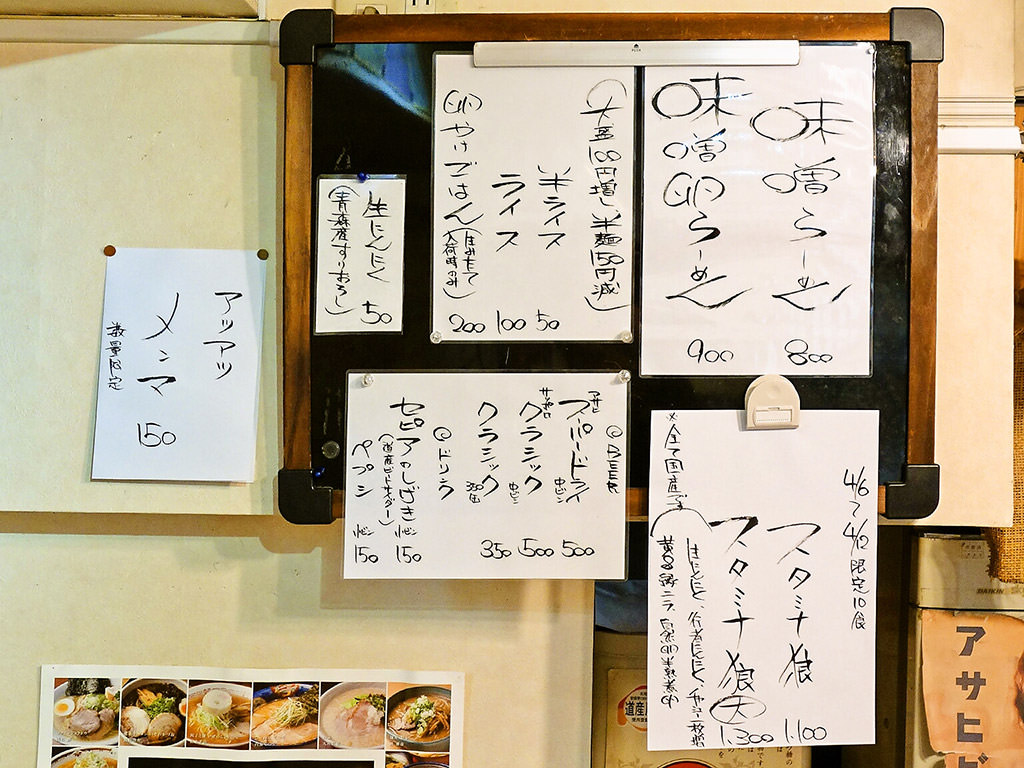 味噌らーめん 800
味噌卵らーめん 900
(大盛100円増し 半麺150円減)
半ライス 50
ライス 100
卵かけごはん(生みたて入荷時のみ) 200
生にんにく
(青森産すりおろし) 50
アツアツ
メンマ
数量限定
150
◎BEER
アサヒ
スーパードライ 中ビン 500
サッポロ
クラシック 中ビン 500
クラシック 350缶 350
◎ドリンク
セピアのしげき 小ビン 150
(道産ビートサイダー)
ペプシ 小ビン 150
4/6~4/12 限定10食
スタミナ狼 1.100
スタミナ狼 大 1.300
生にんにく、行者にんにく、チャーシュー一枚増
※全て国産です
道産
アサヒビ
DAIKIN